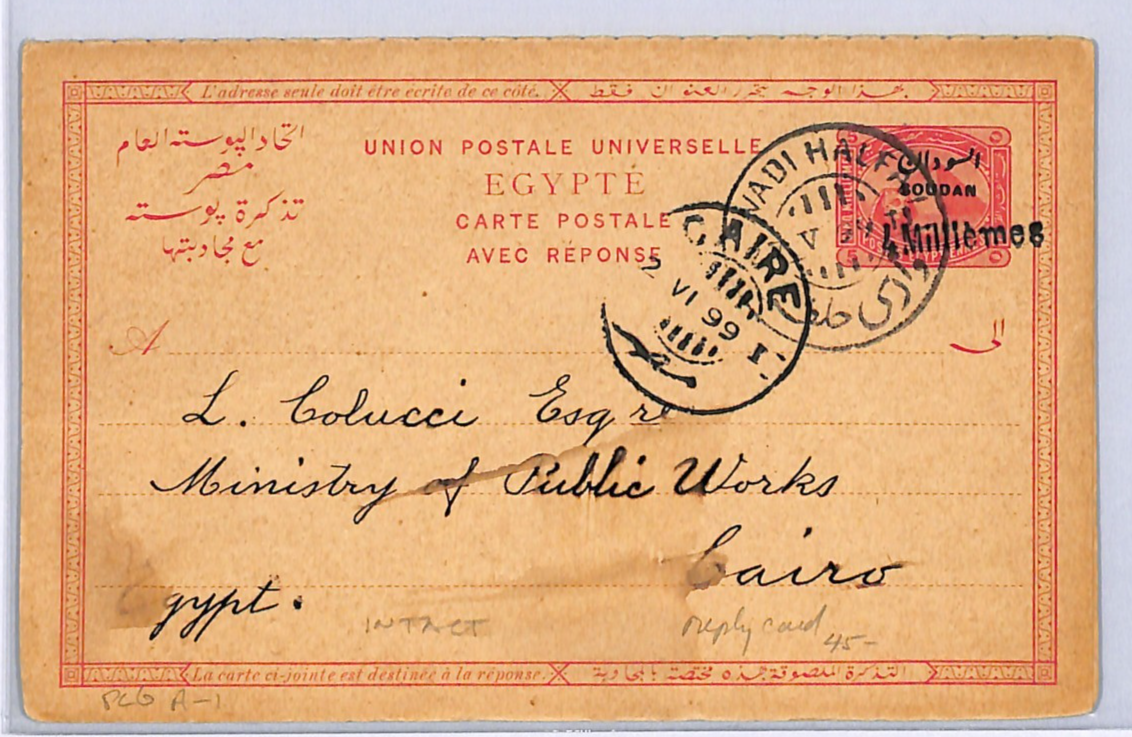 L'adresse seule doit être écrite de ce côté. بهذا الوجه يتحرر العنوان فقط
اتحاد البوسته العام
مصر
تذكرة بوسته
مع مجاوبتها
UNION POSTALE UNIVERSELLE
EGYPTE
CARTE POSTALE
AVEC RÉPONSE
5
السودان
SOUDAN
4 Millièmes
5
WADI HALFA
V
وادى حلفا
CAIRE
2 VI 99 I
A
الى
L. Colucci Esqre
Ministry of Public Works
Cairo
Egypt.
INTACT
reply card
45-
La carte ci-jointe est destinée à la réponse. التذكرة الملصوقة بهذه مختصة بالمجاوبة
PCG A-1